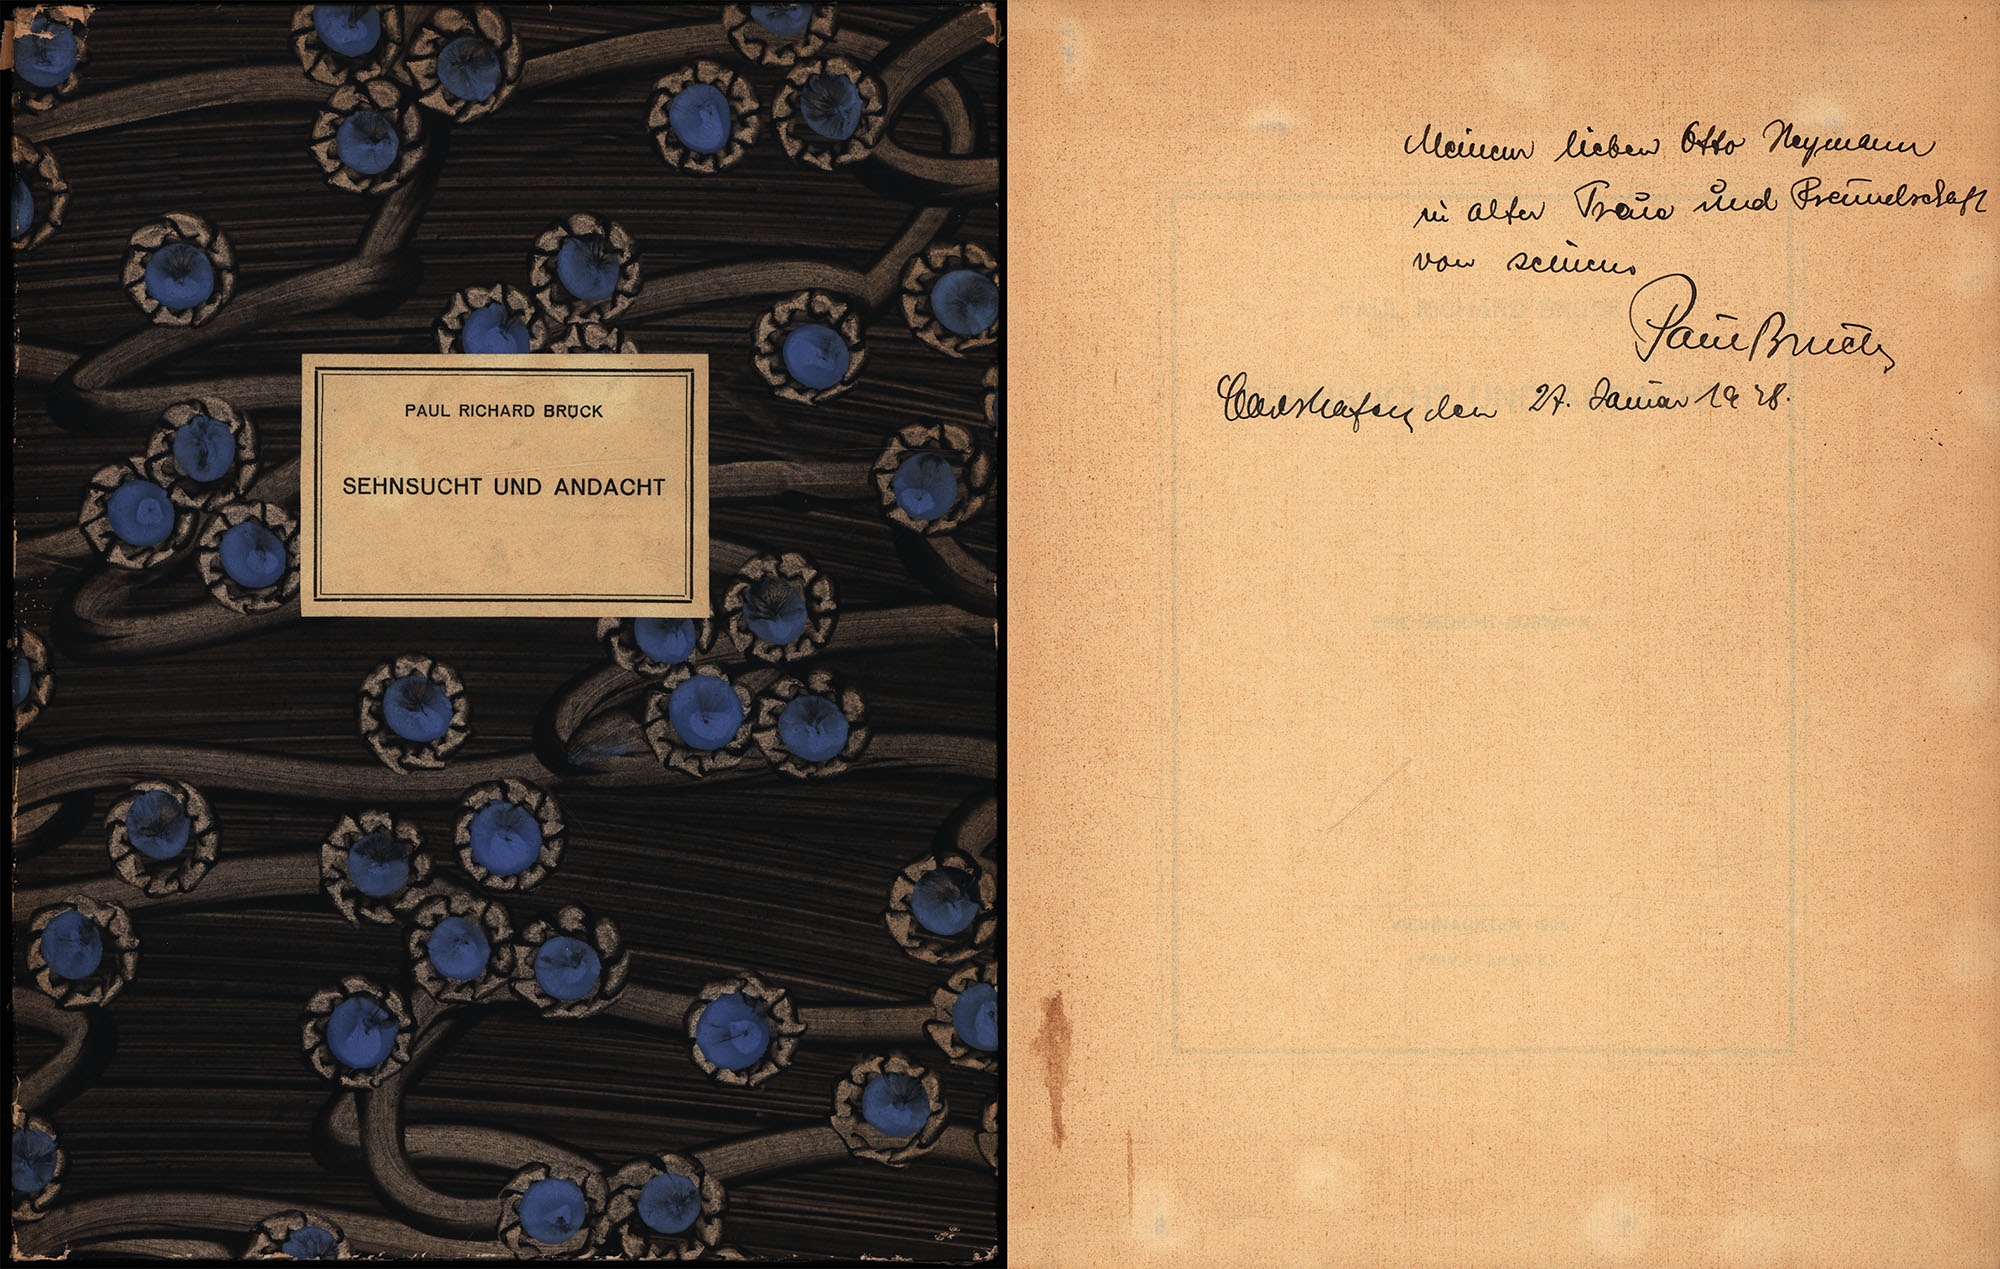 PAUL RICHARD BRÜCK
SEHNSUCHT UND ANDACHT
Meinem lieben Otto Heymann
in alter Treue und Freundschaft
von seinem
Paul Brück
den 27. Januar 19
PAUL RICHARD BRÜCK